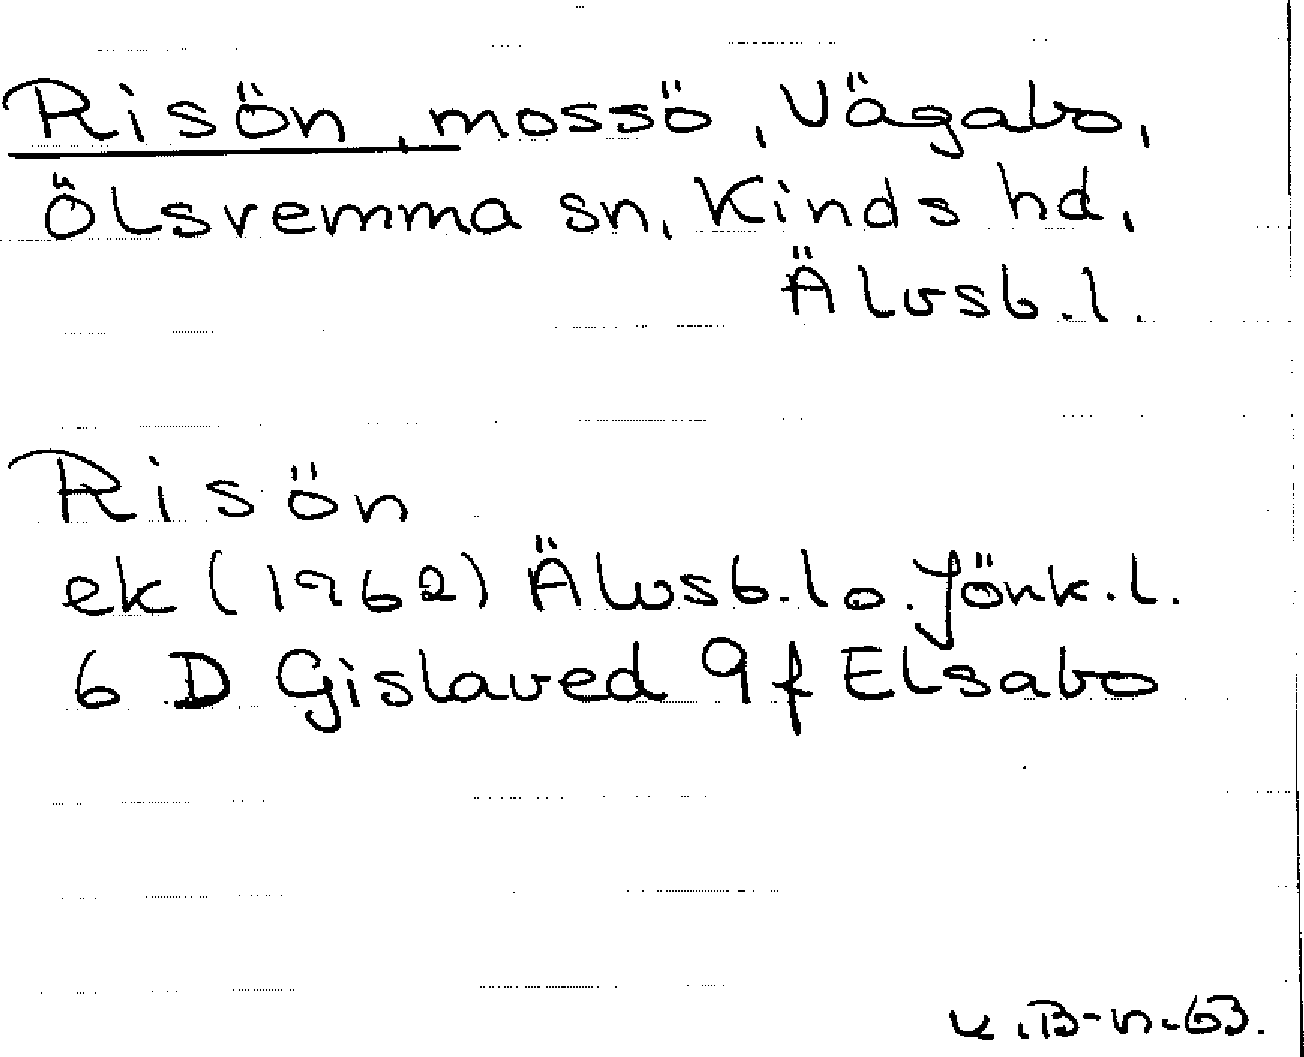 Risön, mossö, Vägabo,
Ölsremma sn, Kinds hd,
Älvsb.l.
Risön
ek (1962) Älvsb.l o. Jönk.l.
6 D Gislaved 9f Elsabo
K.B-n.63.